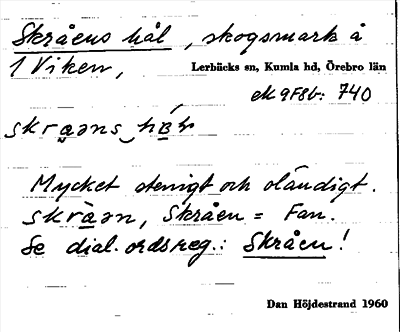 Skråens hål, skogsmark å
1 Viken,
Lerbäcks sn, Kumla hd, Örebro län
ek 9F8b: 740
Mycket stenigt och oländigt.
skràən, Skråen = Fan.
Se dial.ordsreg.: Skråen!
Dan Höjdestrand 1960